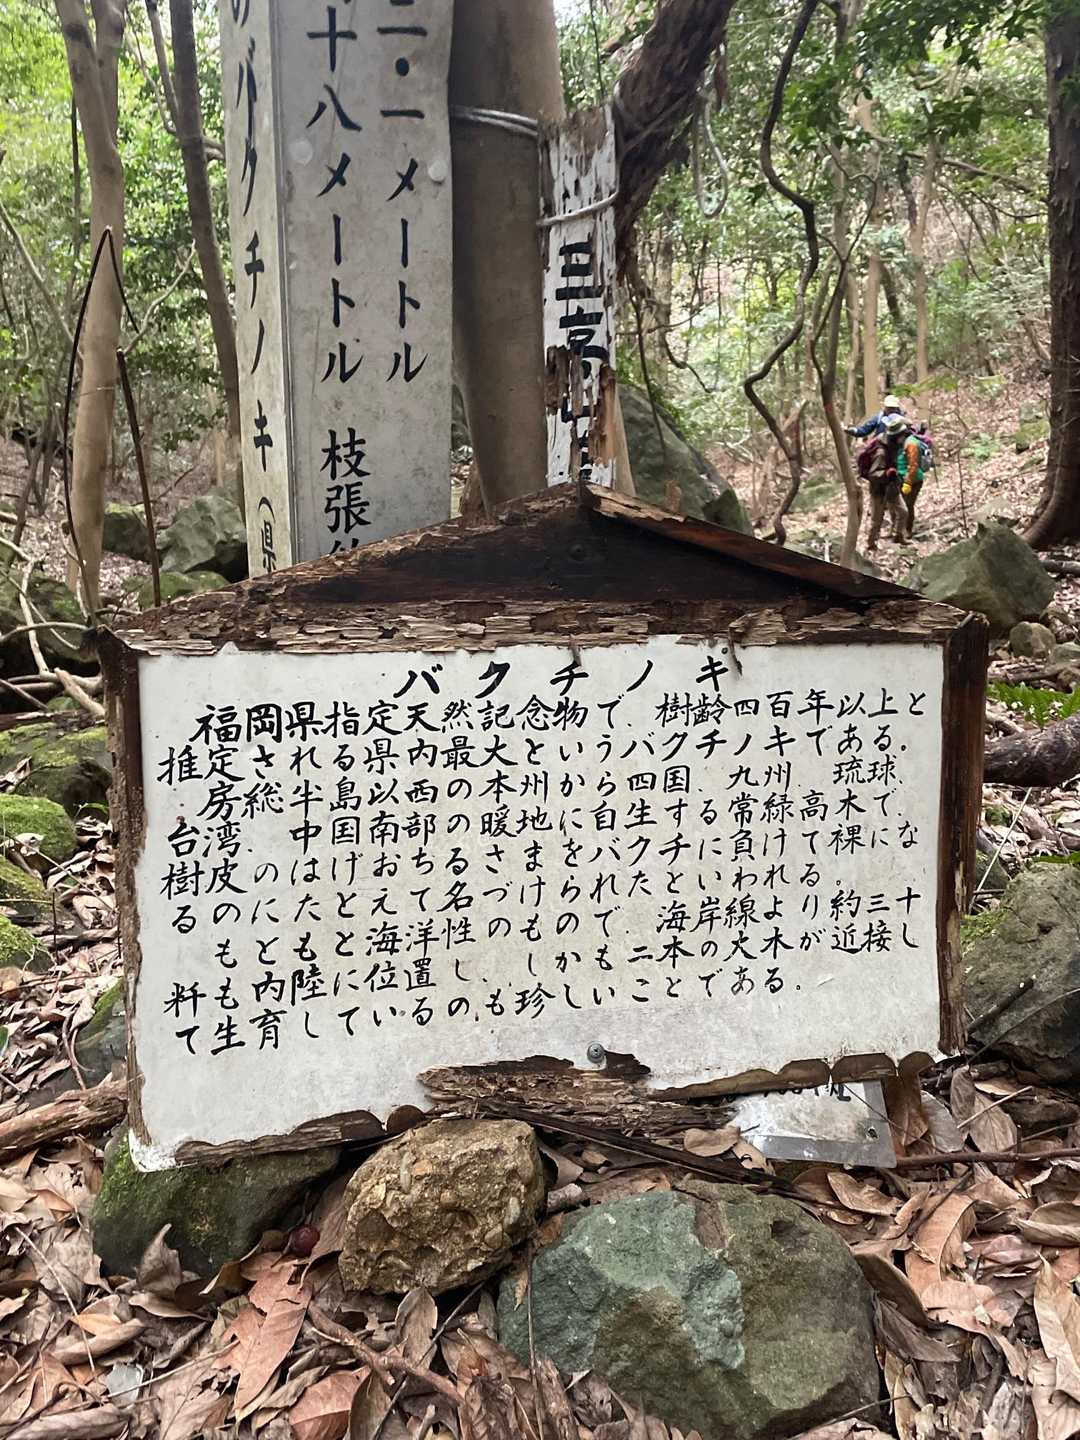 二・一メートル
十八メートル 枝張
のバクチノキ(県
バクチノキ
福岡県指定天然記念物で、樹齢四百年以上と
推定される県内最大というバクチノキである。
房総半島以西の本州から四国、九州、琉球、
台湾、中国南部の暖地に自生する常緑高木で、
樹皮のはげおちるさまをバクチに負けて裸にな
るのにたとえて名づけられたといわれる。
もともと海洋性のもので、海岸線より約三十
粁も内陸に位置し、しかも二本の大木が近接し
て生育しているのも珍しいことである。